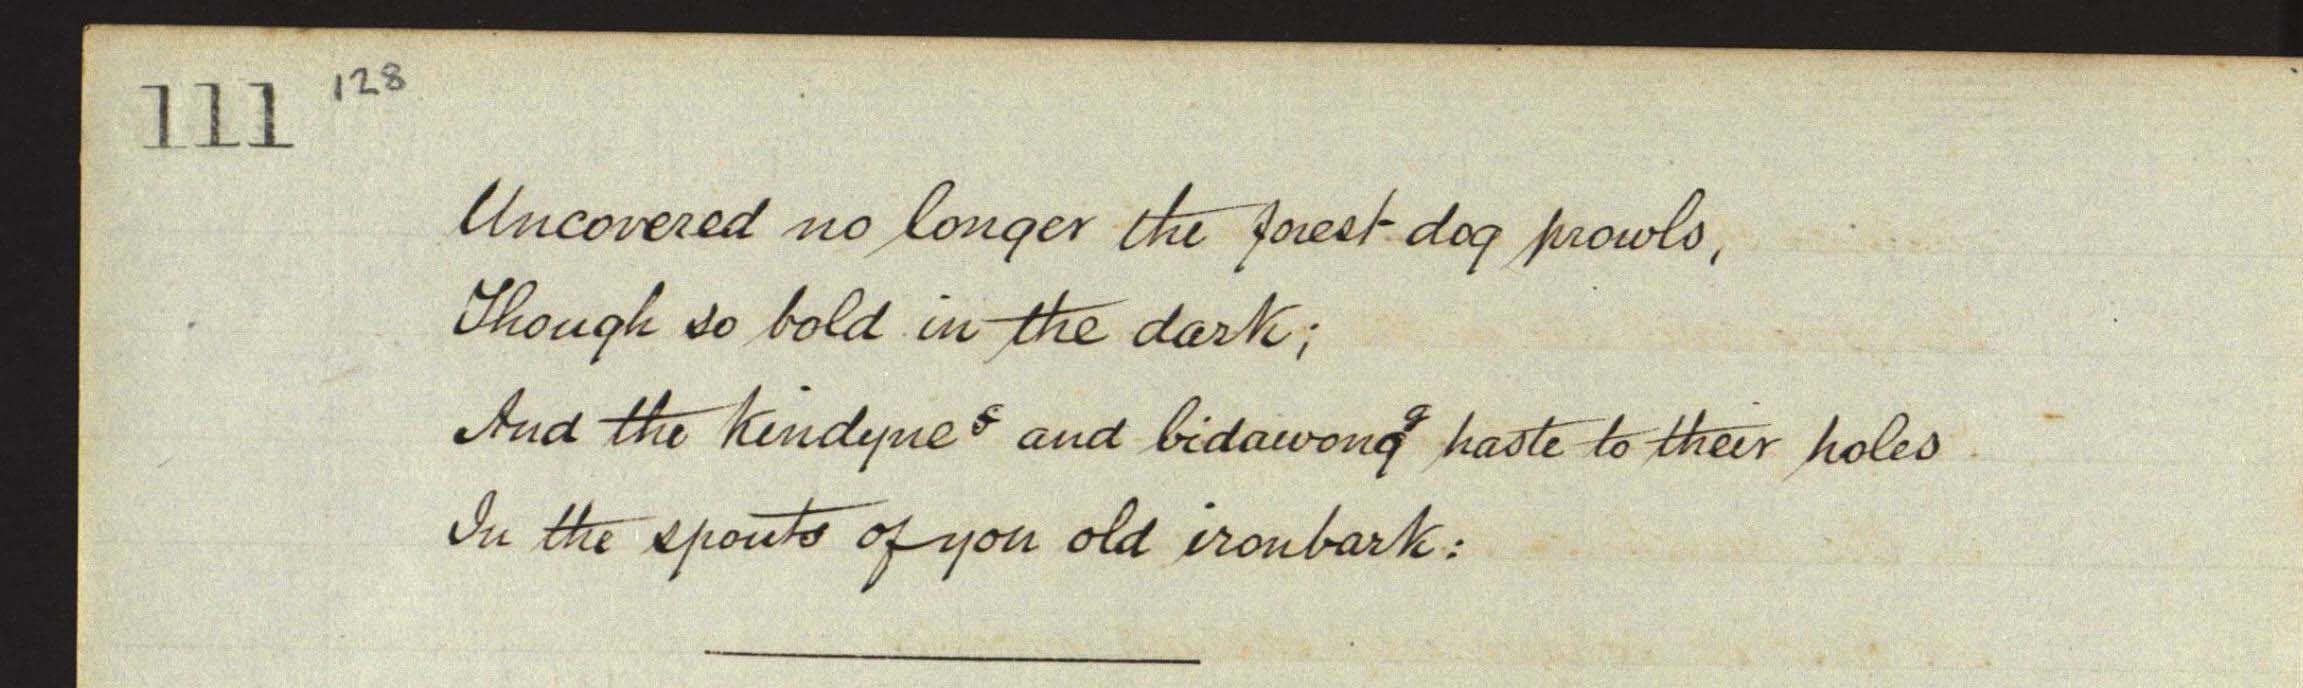 111 128
Uncovered no longer the forest dog prowls,
Though so bold in the dark;
And the Kindynes and bidawong haste to their holes
In the spouts of yon old ironbark: